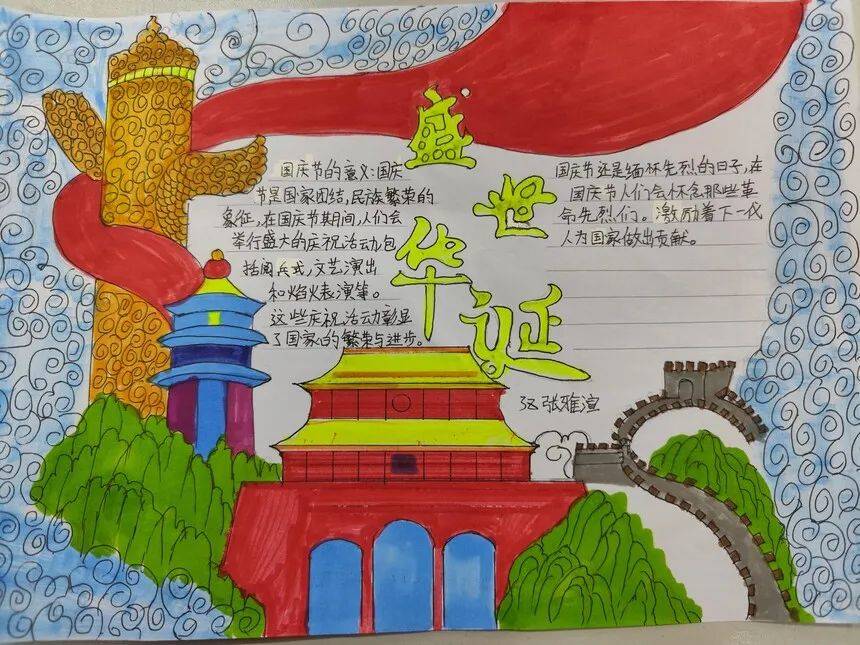 盛世华诞
国庆节的意义:国庆
节是国家团结,民族繁荣的
象征,在国庆节其期间,人们会
举行盛大的庆祝活动,包
括阅兵式,文艺演出
和焰火表演等。
这些庆祝活动彰显
了国家的繁荣与进步。
国庆节还是缅怀先烈的日子,在
国庆节人们会怀念那些革
命先烈们。激励着下一代
人为国家做出贡献。
张雅渲